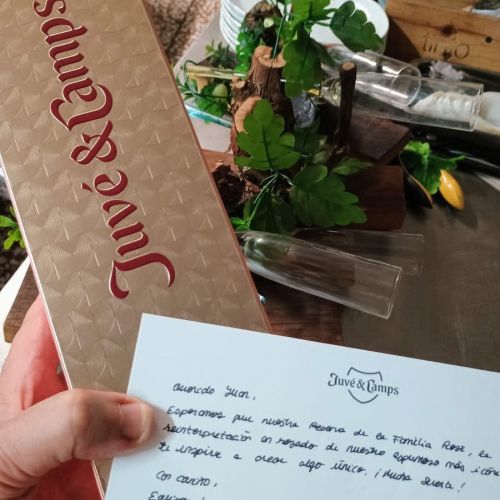 Juvé & Camps
Juvé & Camps
Querido Juan,
Esperamos que nuestra Reserva de la Familia Rosé, la
reinterpretación en rosado de nuestro espumoso más icón
te inspire a crear algo único. ¡Mucha suerte!
Con cariño,